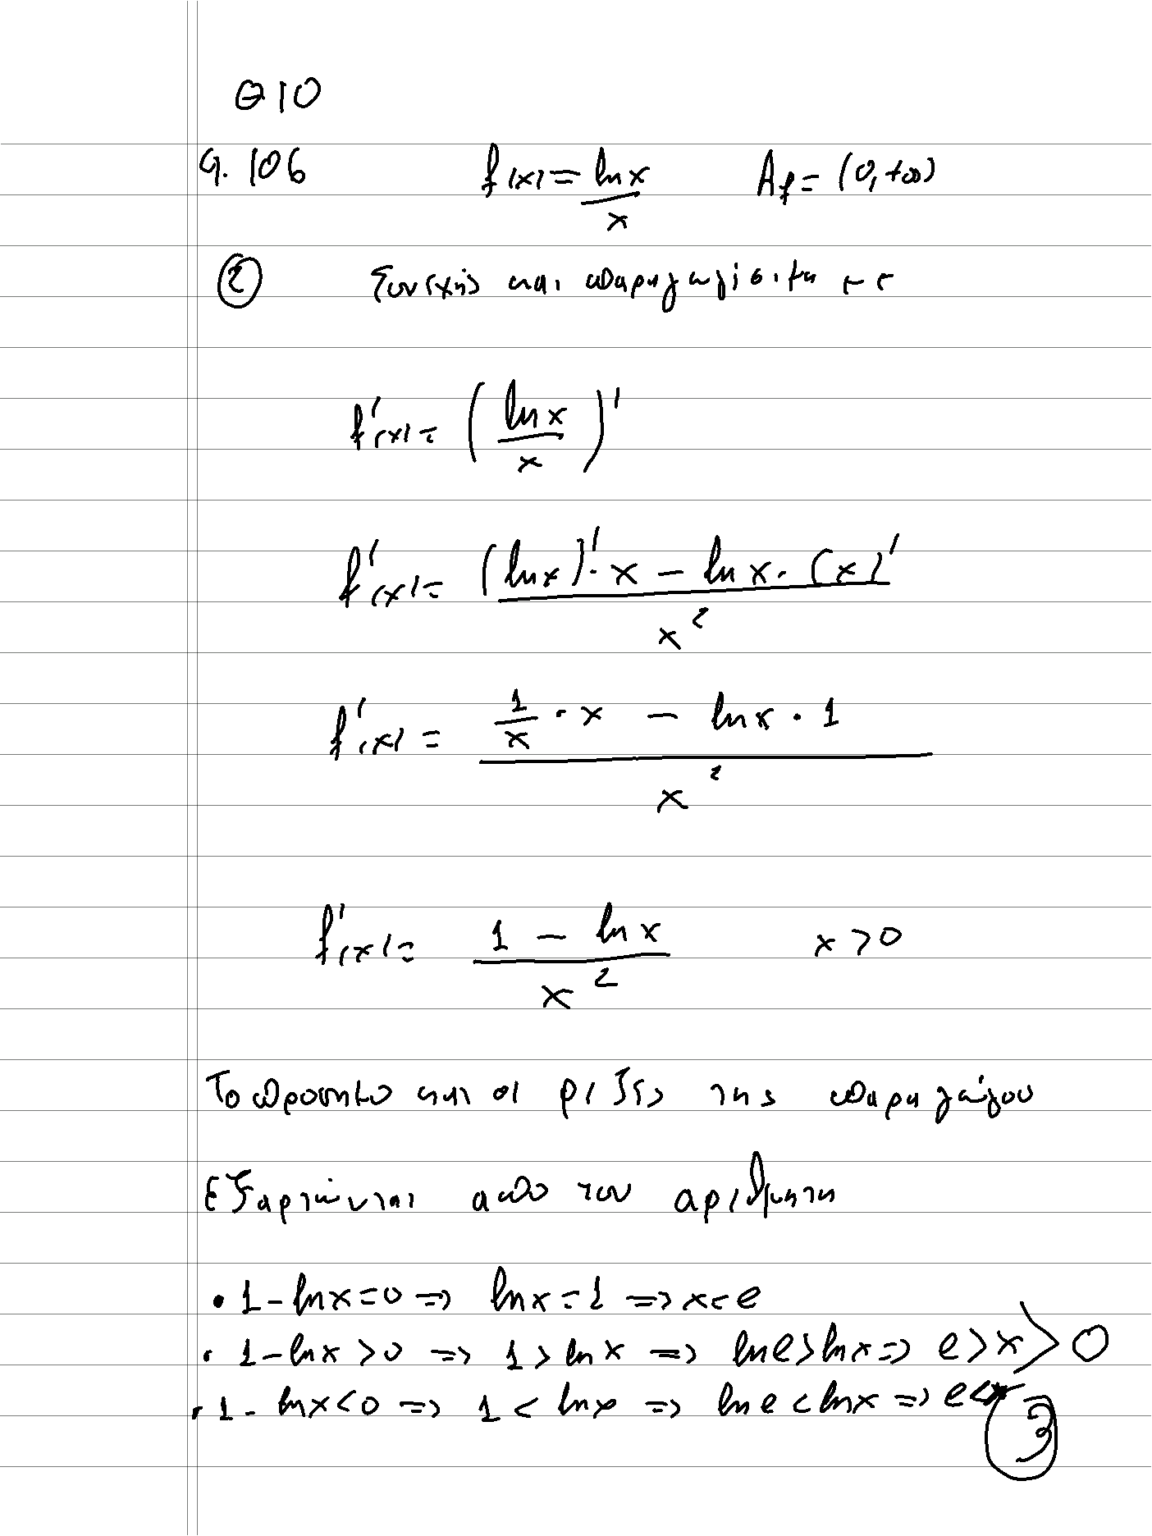 Θ10
σ. 106 f(x) = lnx / x A_f = (0, +∞)
② Συνεχής και παραγωγίσιμη με
f'(x) = (lnx / x)'
f'(x) = ((lnx)'·x - lnx·(x)') / x²
f'(x) = (1/x · x - lnx · 1) / x²
f'(x) = (1 - lnx) / x² x > 0
Το πρόσημο και οι ρίζες της παραγώγου
Εξαρτώνται από τον αριθμητη
• 1 - lnx = 0 => lnx = 1 => x = e
• 1 - lnx > 0 => 1 > lnx => lne > lnx => e > x > 0
• 1 - lnx < 0 => 1 < lnx => lne < lnx => e < x
③